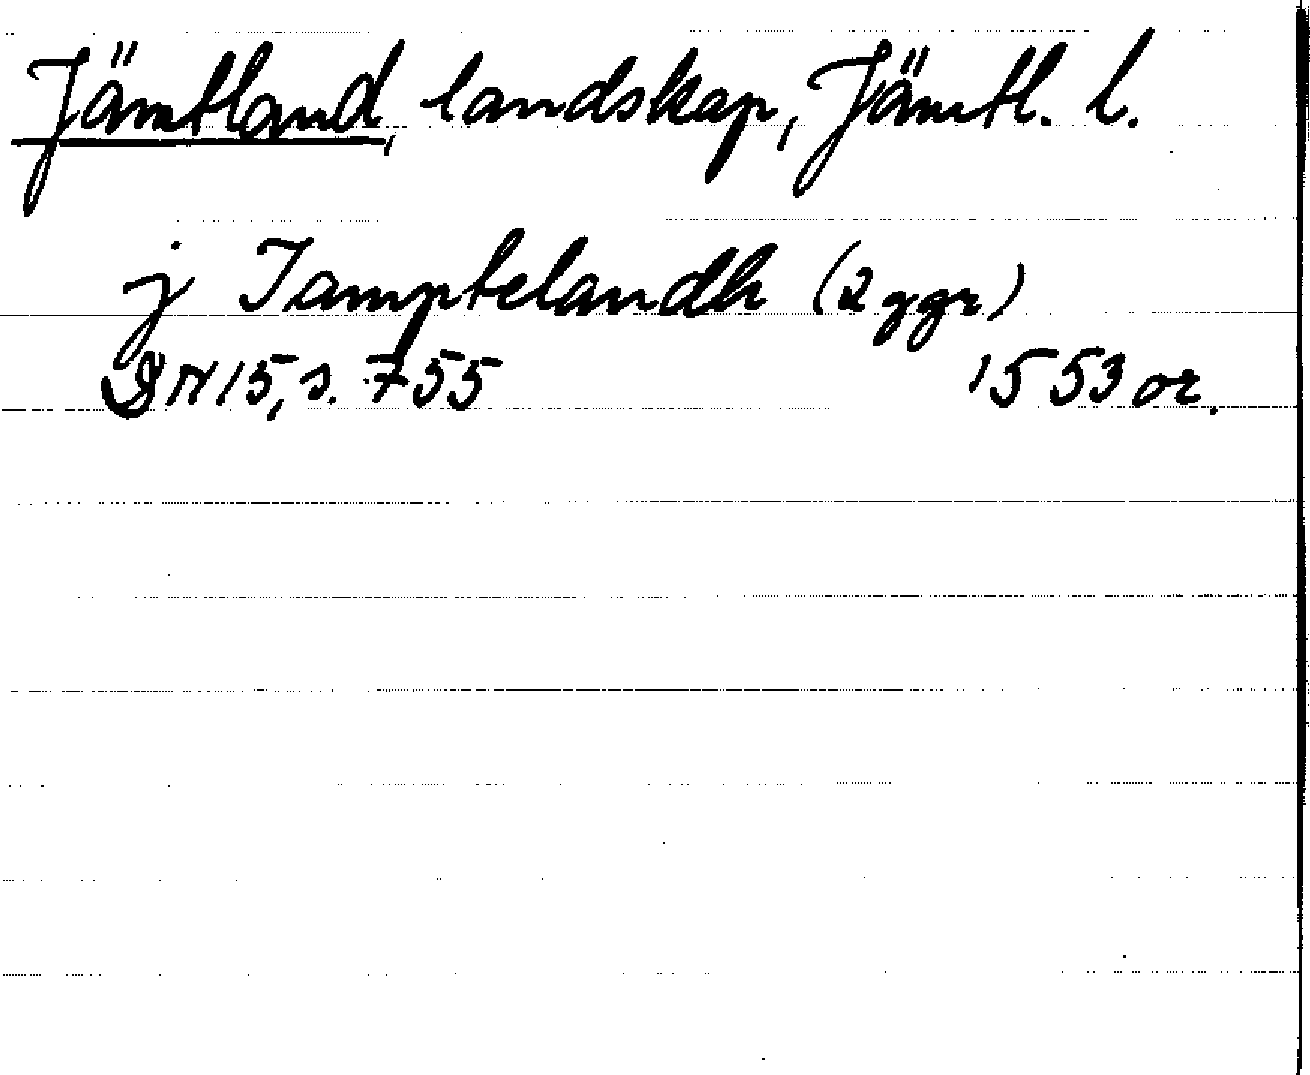 Jämtland, landskap, Jämtl. l.
j Iamptelandh (2 ggr)
DN 15, s. 755 1553 or.